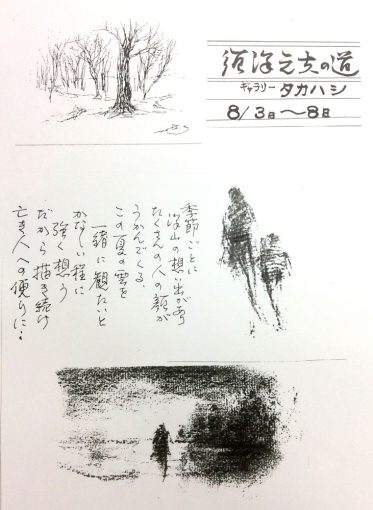 須洋之文の道
ギャラリー タカハシ
8/3日〜8日
季節ごとに
沢山の想い出があり
たくさんの人の顔が
うかんでくる、
この夏の雲を
一緒に観たいと
かなしい程に
強く想う
だから描き続け
亡き人への便りに…